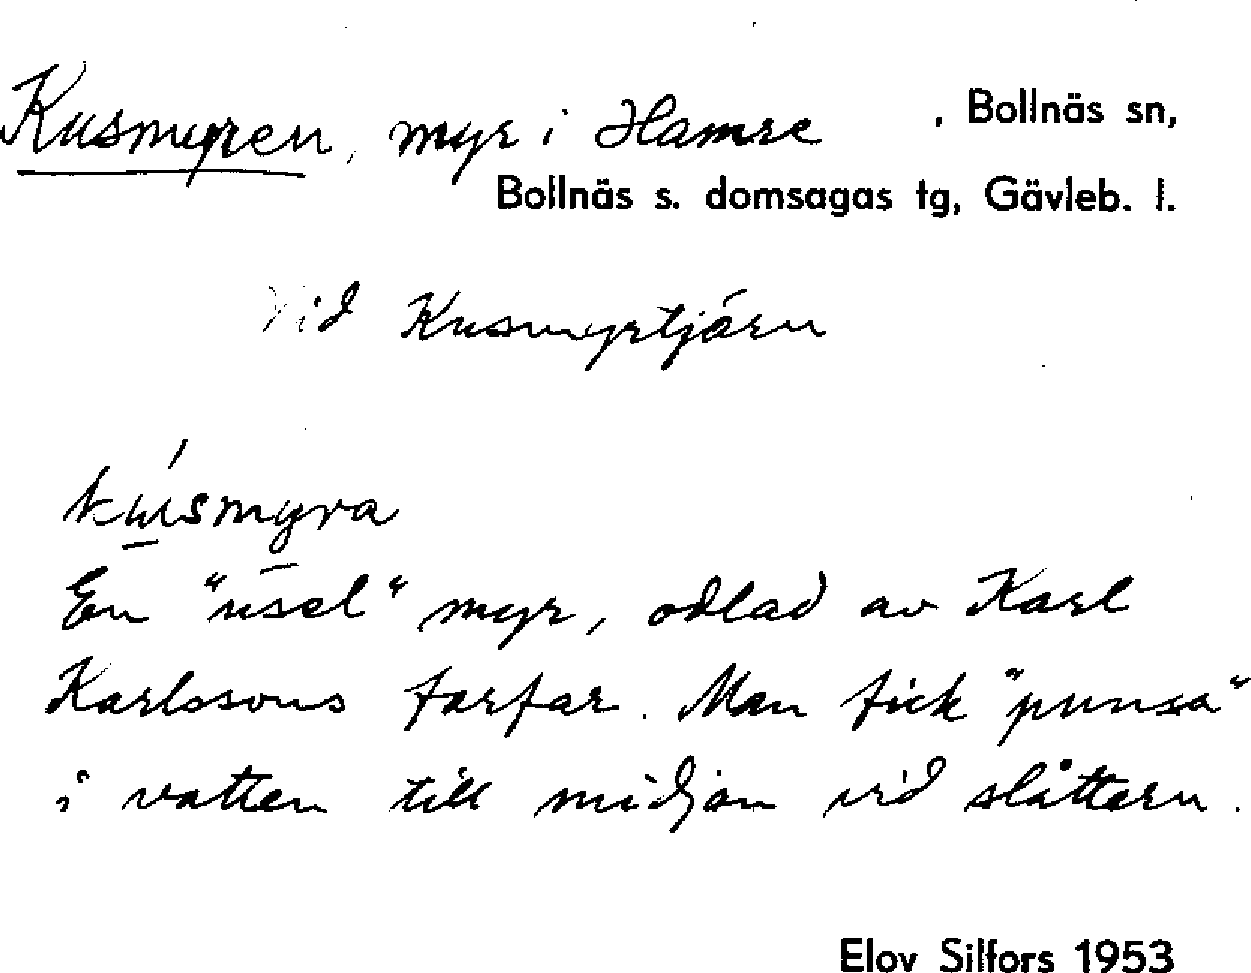 Kusmyren, myr i Hamre , Bollnäs sn,
Bollnäs s. domsagas tg, Gävleb. l.
Vid Kusmyrtjärn
kúsmyra
En "usel" myr, odlad av Karl
Karlssons farfar. Man fick "punsa"
i vatten till midjan vid slåttern.
Elov Silfors 1953